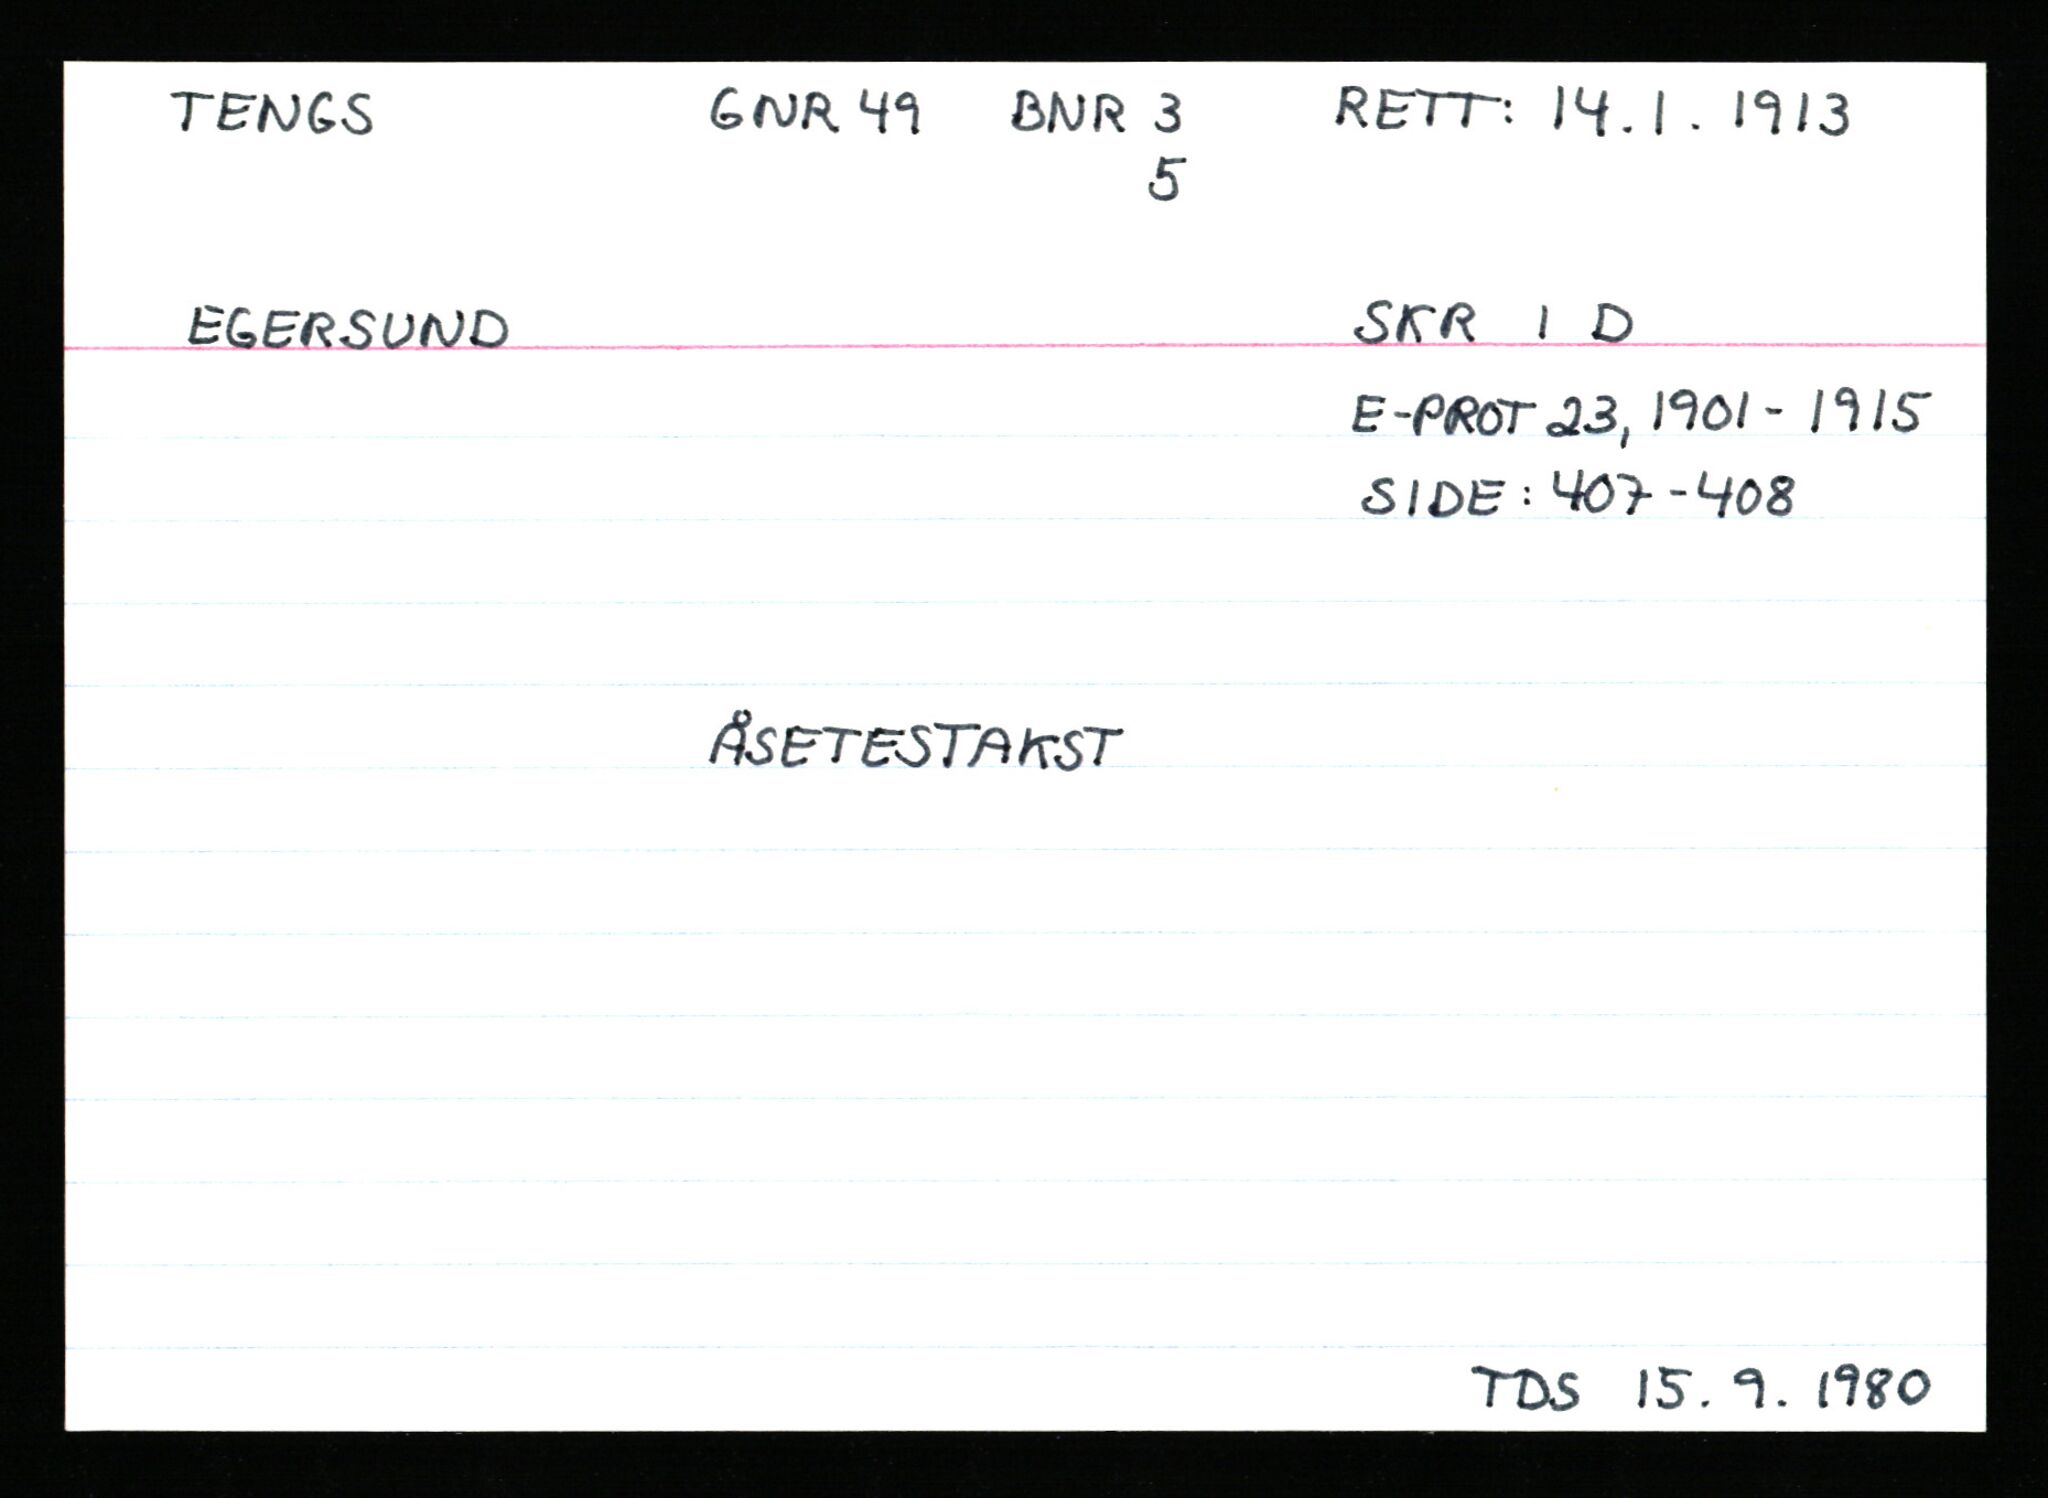 TENGS GNR 49 BNR 3 RETT: 14.1. 1913
5
EGERSUND SKR 1 D
E-PROT 23, 1901-1915
SIDE: 407-408
ÅSETESTAKST
TDS 15.9.1980